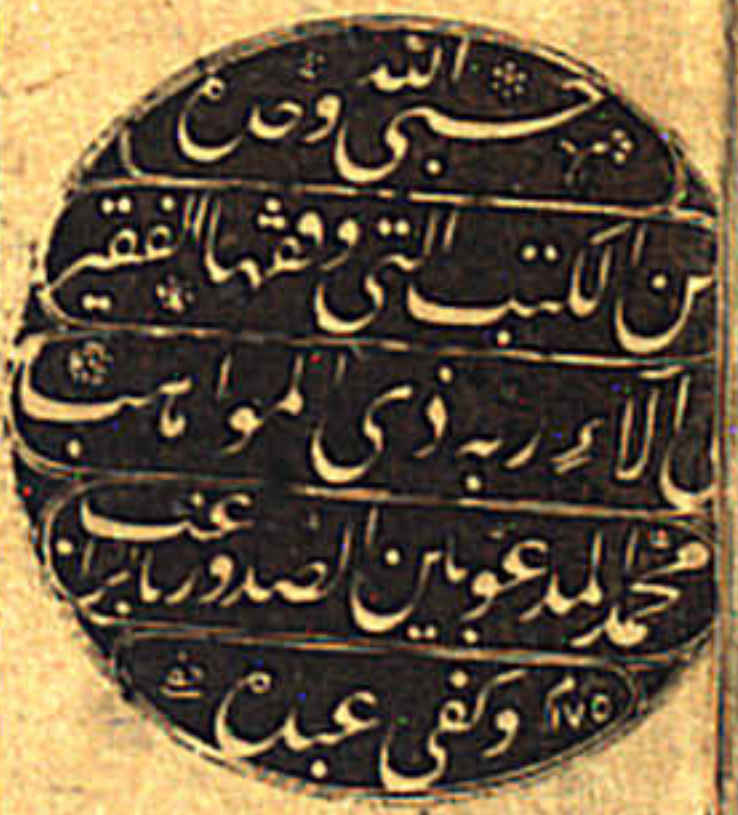 حسبي الله وحده
من الكتب التي وقفها الفقير
الى آلاء ربه ذي المواهب
محمد المدعو بين الصدور بالراغب
١٧٥ وكفى عبده